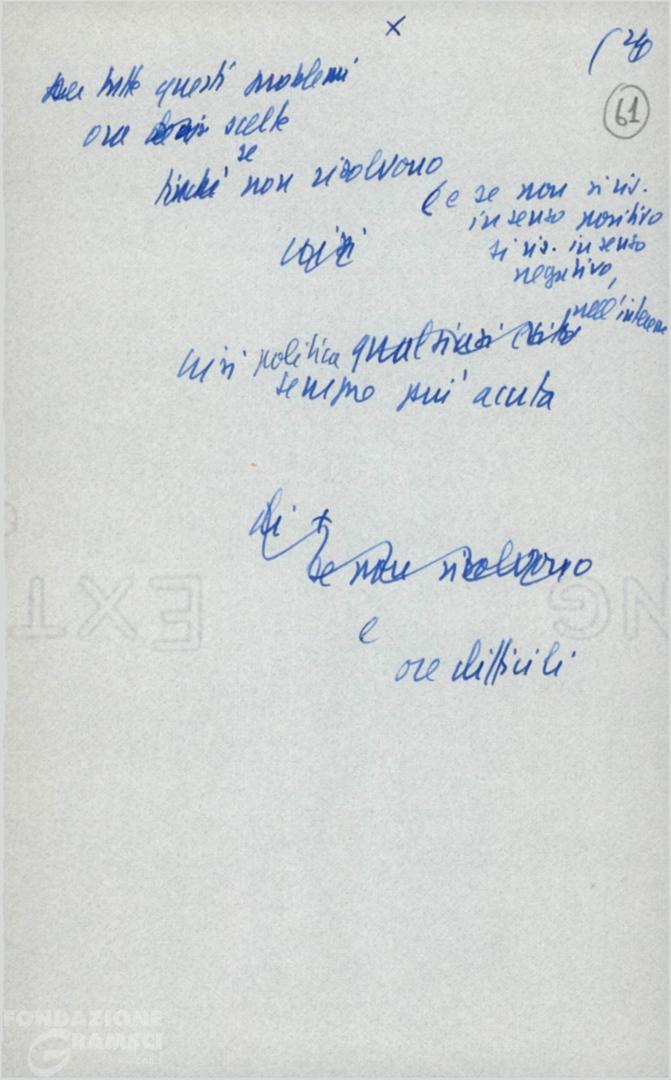 x
(24
61
per tutti questi problemi
ora scelte
se
finché non risolvono
(e se non si ris.
in senso positivo
si ris. in senso
negativo,
nell'interesse
crisi
crisi politica qualsiasi esito
sempre più acuta
di +
se non risolvono
e
ore difficili
EXT
NG
FONDAZIONE
GRAMSCI